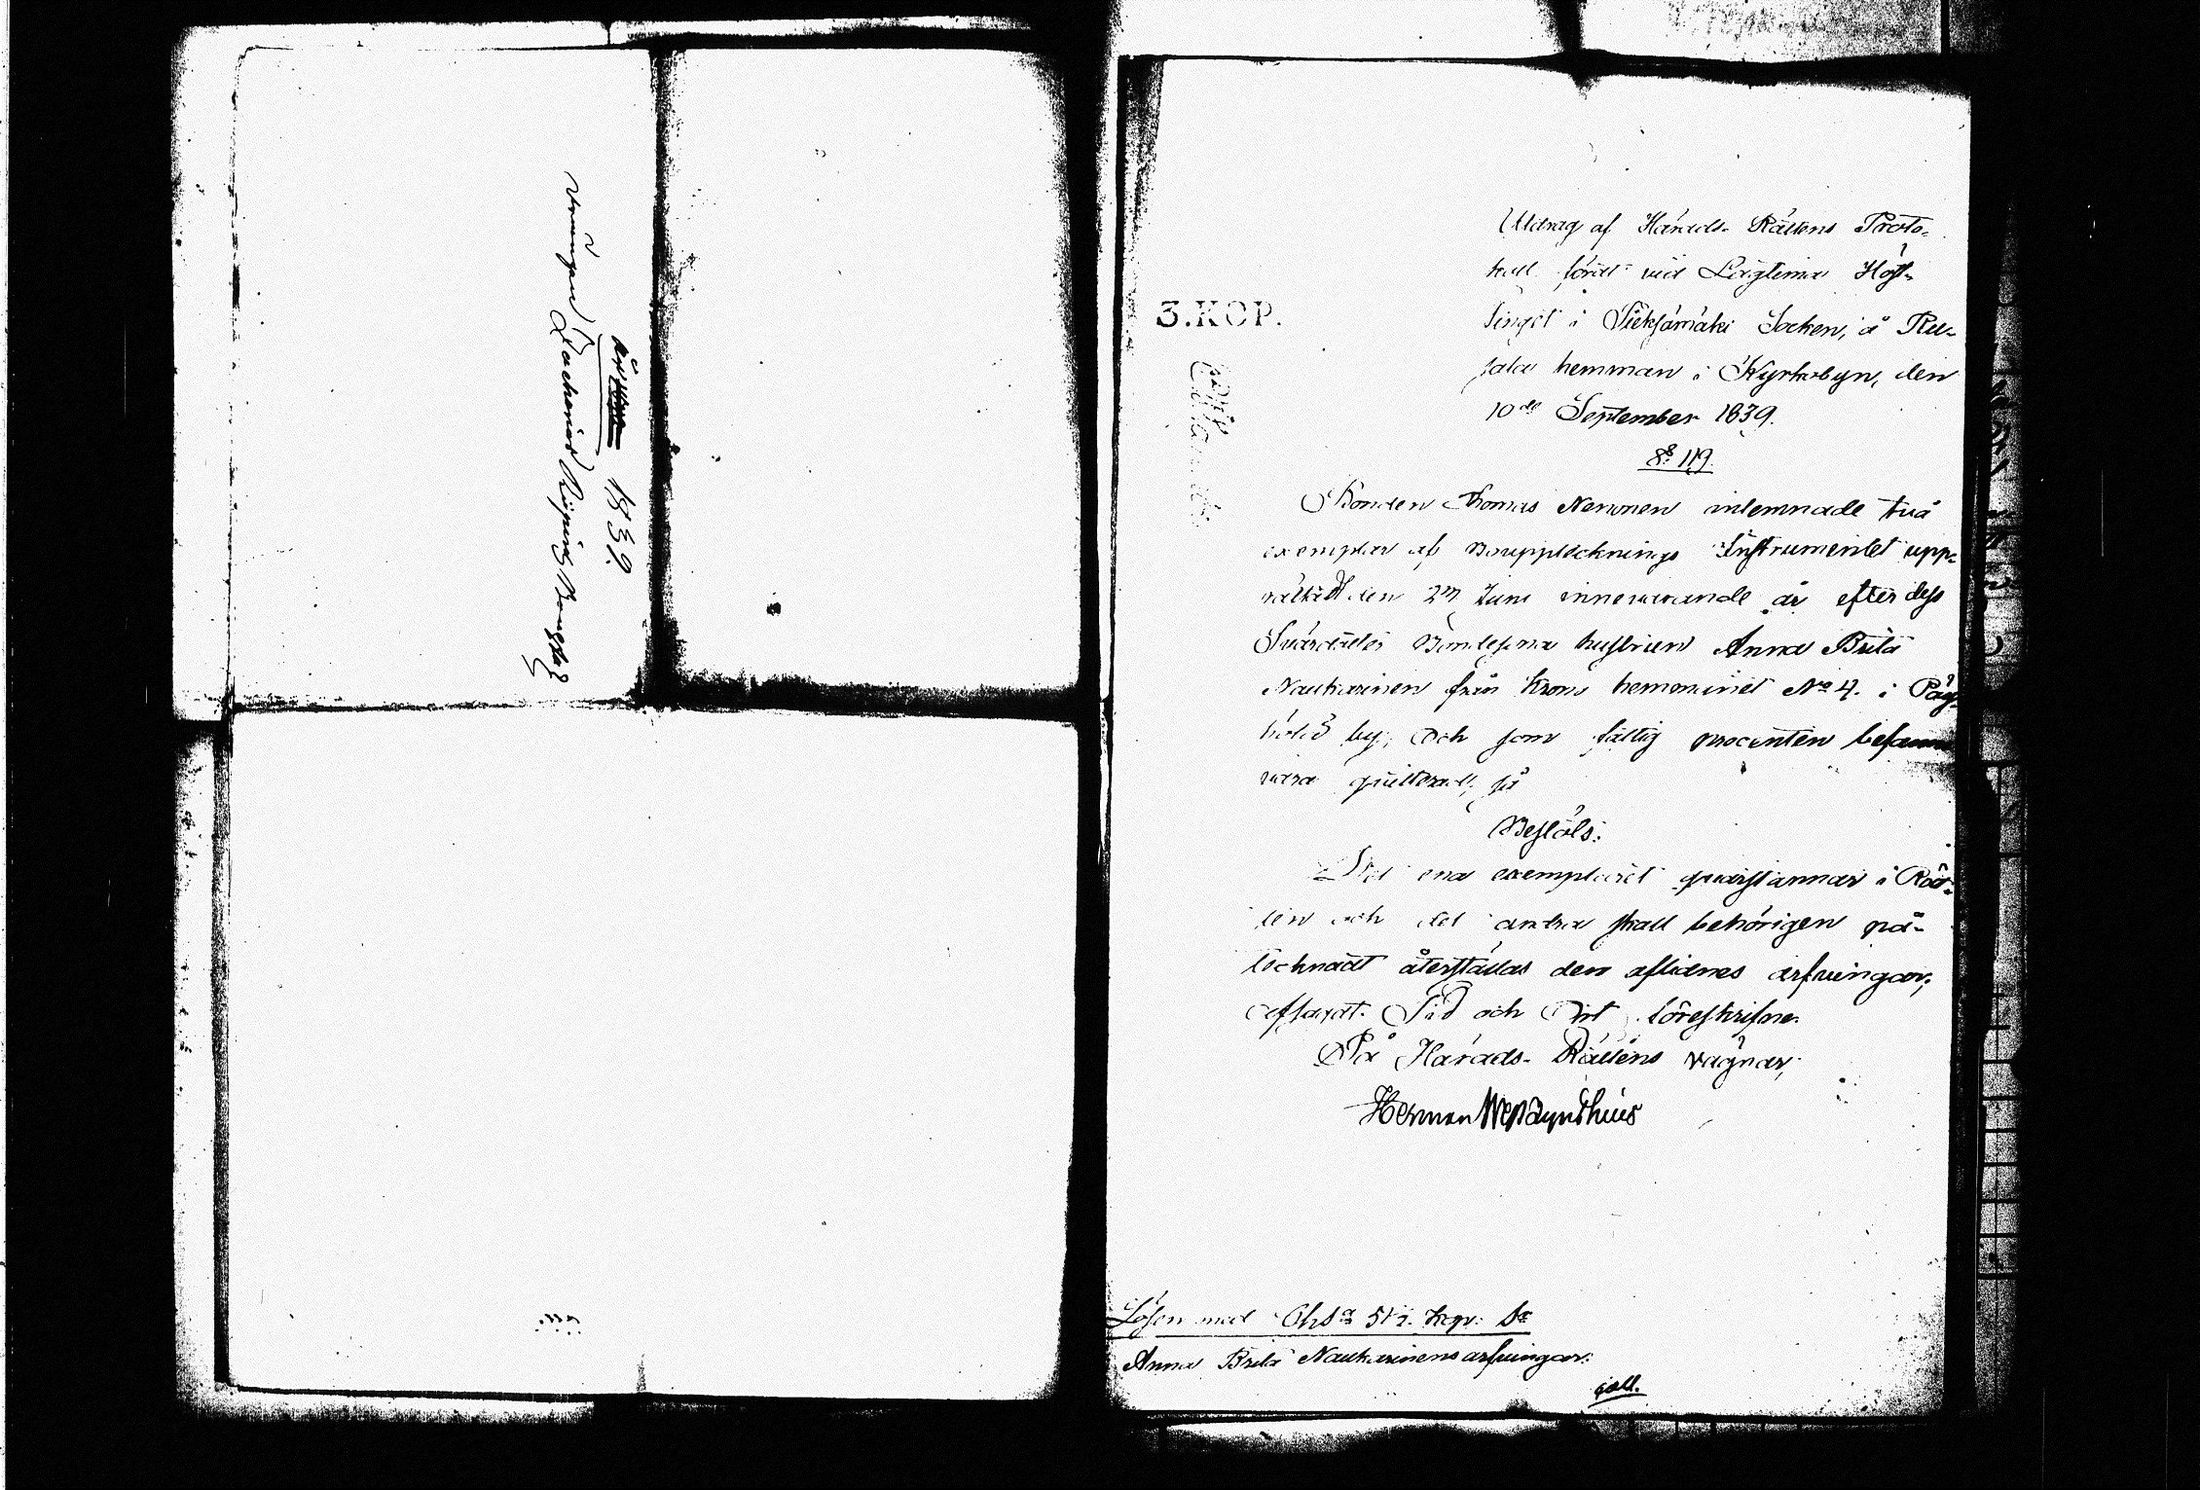 År 1839
3. KOP.
Utdrag af Härads-Rättens Proto-
koll fördt vid Lagtima Höst-
tinget i Pieksämäki Socken, å Ru-
sala hemman i Kyrkobyn, den
10de September 1839.
§ 119.
Bonden Thomas Neronen inlemnade två
exemplar af Boupptecknings Instrumentet upp-
rättadt den 2 Juni innevarande år efter dess
Svärdotter Bondesona hustrun Anna Brita
Naukarinen från Krono hemmanet No 4. i
by; Och som fattig procenten befanns
vara quitterad; så
Beslöts:
Det ena exemplaret quarstannar i Rät-
ten och det andra skall behörigen på-
tecknadt återställas den aflidnes arfvingar;
afsagdt. Tid och Ort föreskrifne.
På Härads-Rättens vägnar;
Herman
Lösen med
Anna Brita Naukarinens arfvingar.
coll.